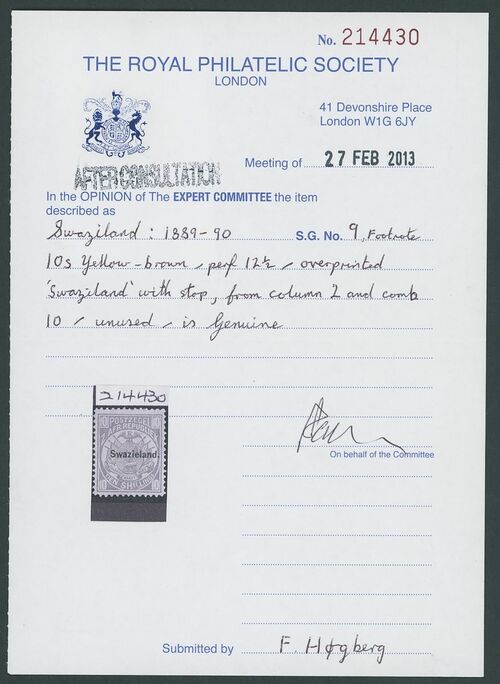 No. 214430
THE ROYAL PHILATELIC SOCIETY
LONDON
41 Devonshire Place
London W1G 6JY
AFTER CONSULTATION
Meeting of 27 FEB 2013
In the OPINION of The EXPERT COMMITTEE the item
described as
Swaziland : 1889-90 S.G. No. 9, Footnote
10s Yellow-brown, perf 12½, overprinted
'Swaziland' with stop, from column 2 and comb
10, unused, is Genuine
214430
POSTZEGEL
Swazieland.
10 10
On behalf of the Committee
Submitted by F. Høgberg